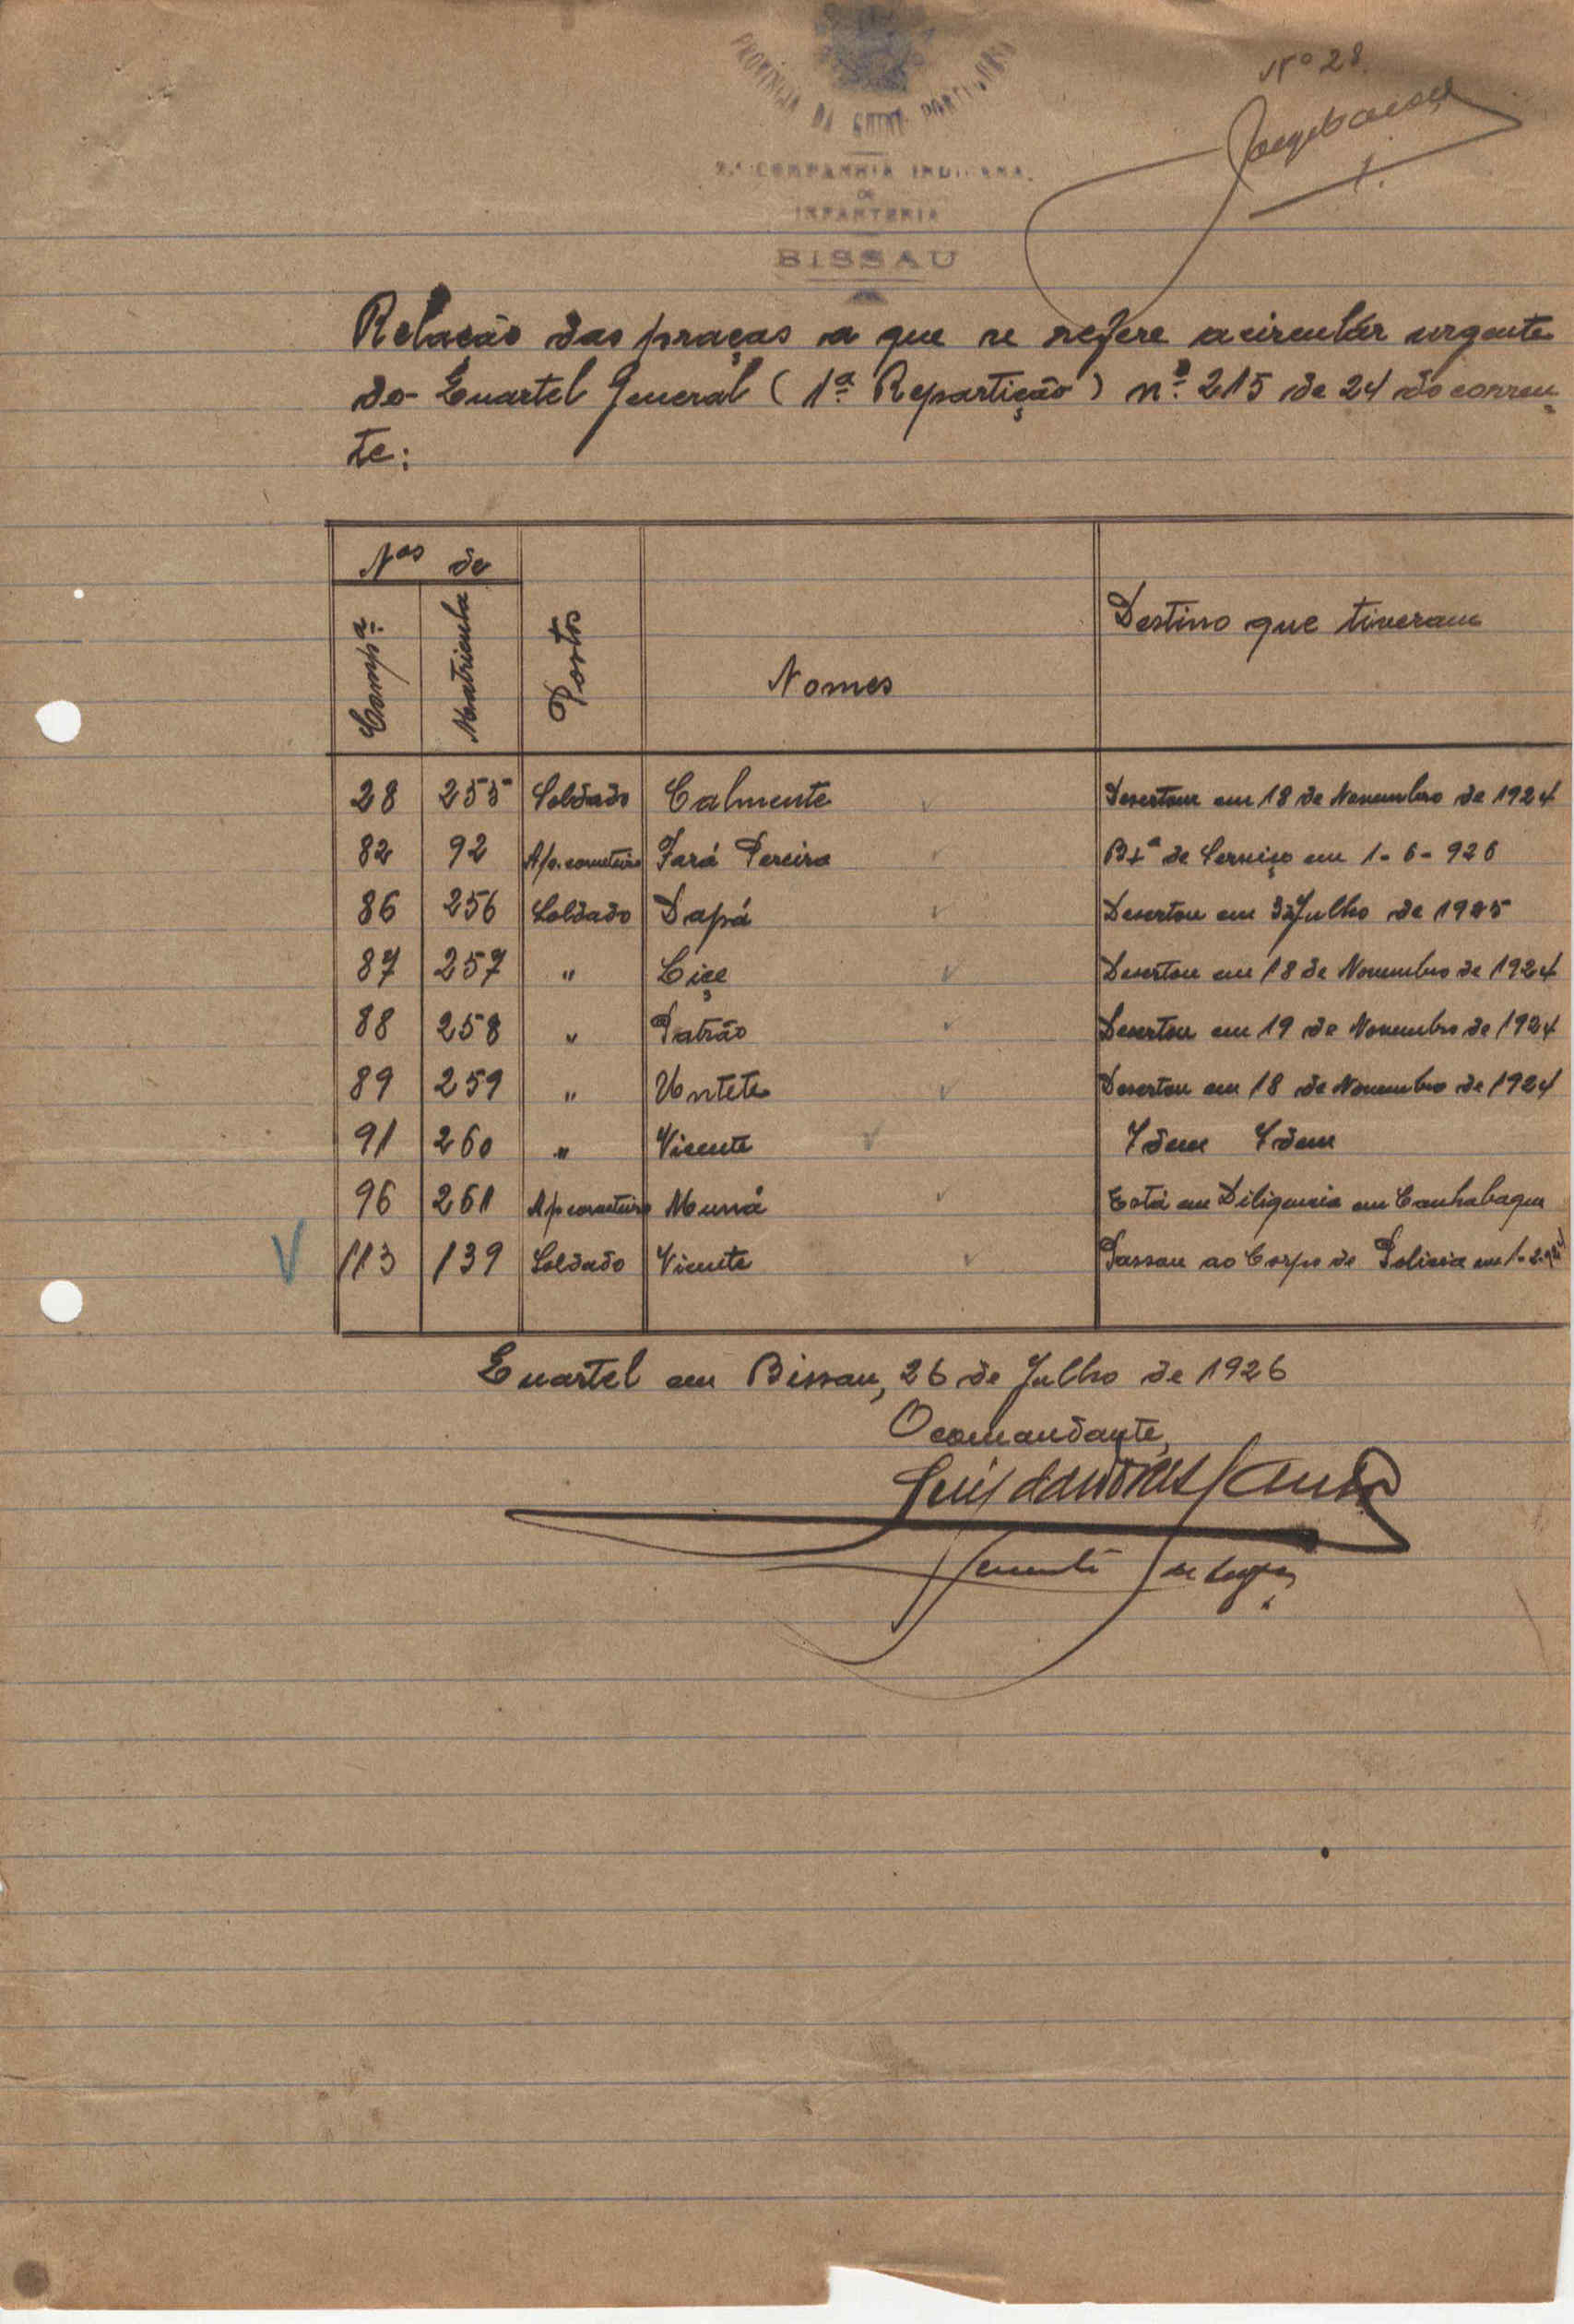 Nº 28
PROVINCIA DA GUINÉ PORTUGUESA
2.ª COMPANHIA INDIGENA
DE
INFANTERIA
BISSAU
Relação das praças a que se refere a circulár urgente
do Quartel General (1ª Repartição) nº 215 de 24 do corren-
te:
Nos de
Compª.
Matricula
Postos
Nomes
Destino que tiveram
28 255 Soldado Calmente Desertou em 18 de Novembro de 1924
82 92 Ap. corneteiro Fará Pereira Bxª de Serviço em 1-6-926
86 256 Soldado Dapá Desertou em 3 de Julho de 1925
87 257 " Liçe Desertou em 18 de Novembro de 1924
88 258 " Patrão Desertou em 19 de Novembro de 1924
89 259 " Untete Desertou em 18 de Novembro de 1924
91 260 " Vicente Idem Idem
96 261 Ap corneteiro Muná Está em Diligencia em Canhabaque
113 139 Soldado Vicente Passou ao Corpo de Policia em 1-2-924
Quartel em Bissau, 26 de Julho de 1926
O comandante,
Luís